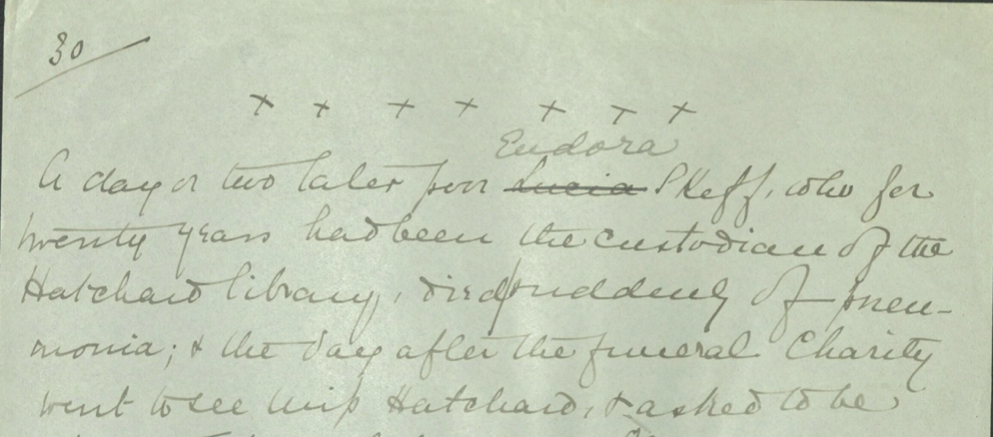 30
+ + + + + + +
Eudora
A day or two later poor Lucia Skeff, who for
twenty years had been the custodian of the
Hatchard library, died suddenly of pneu-
monia; & the day after the funeral Charity
went to see Miss Hatchard, & asked to be